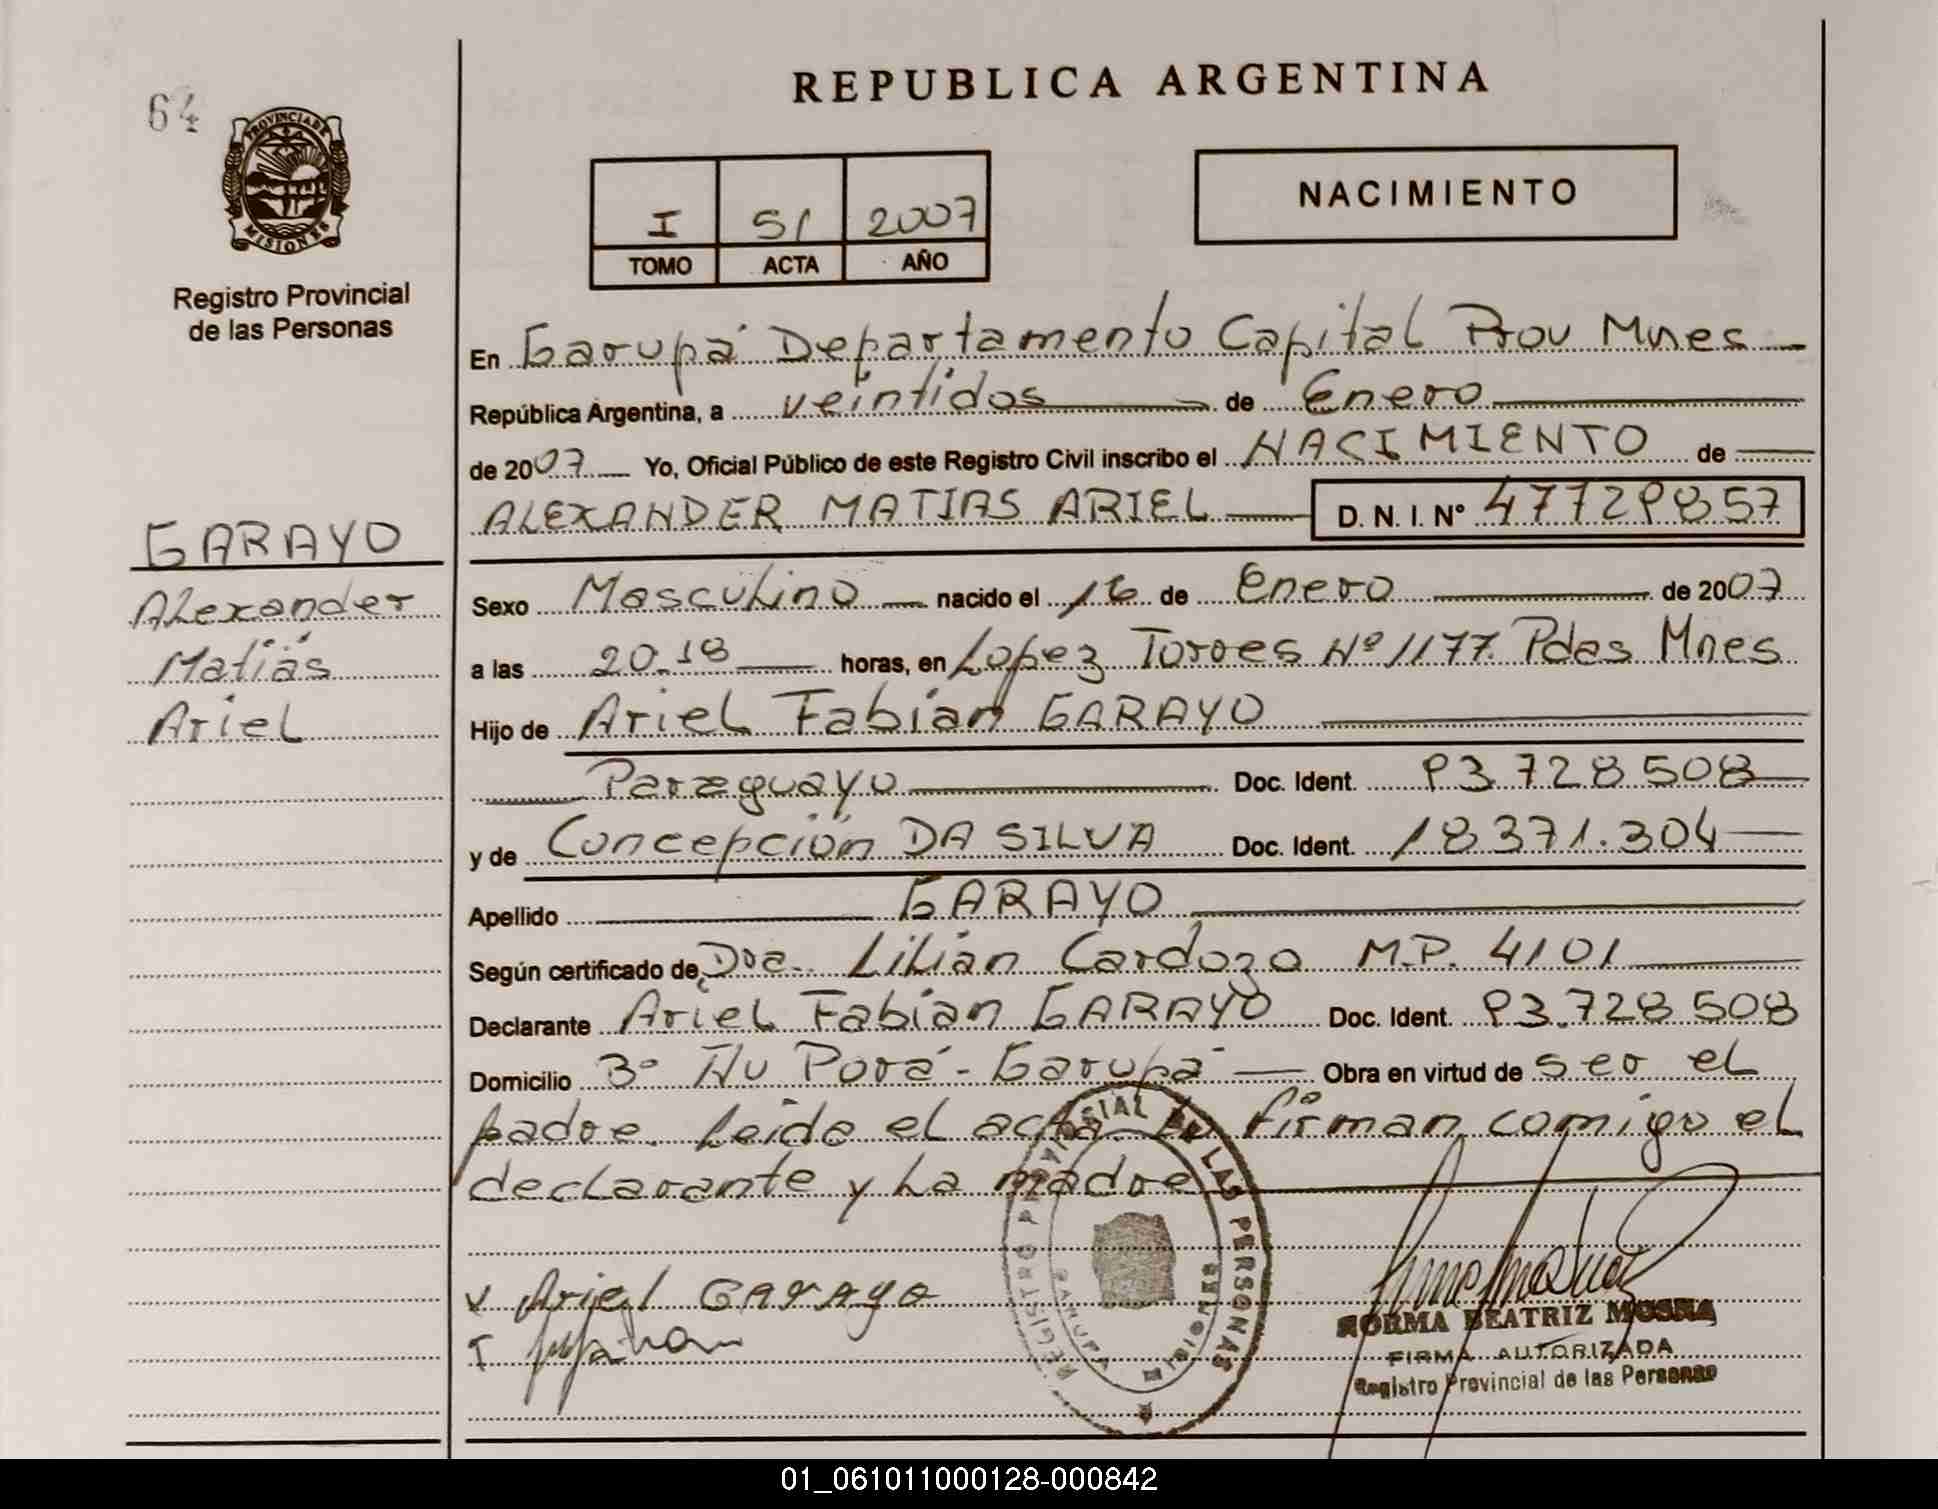 REPUBLICA ARGENTINA
64
PROVINCIA DE
MISIONES
Registro Provincial
de las Personas
I 51 2007
TOMO ACTA AÑO
NACIMIENTO
En Garupá Departamento Capital Prov Mnes
República Argentina, a veintidos de Enero
de 2007 Yo, Oficial Público de este Registro Civil inscribo el NACIMIENTO de
ALEXANDER MATIAS ARIEL D. N. I. N° 47729857
GARAYO
Alexander
Matiás
Ariel
Sexo Masculino nacido el 16 de Enero de 2007
a las 20.18 horas, en Lopez Torres Nº 1177. Pdas Mnes
Hijo de Ariel Fabian GARAYO
Paraguayo Doc. Ident. 93.728.508
y de Concepción DA SILVA Doc. Ident. 18.371.304
Apellido GARAYO
Según certificado de Dra. Lilian Cardozo M.P. 4101
Declarante Ariel Fabian GARAYO Doc. Ident. 93.728.508
Domicilio 3º Ñu Porá - Garupá Obra en virtud de ser el
padre. Leida el acta. La firman comigo el
declarante y la madre
REGISTRO PROVINCIAL DE LAS PERSONAS
GARUPA
MISIONES
Ariel GARAYO
NORMA BEATRIZ MOSNA
FIRMA AUTORIZADA
Registro Provincial de las Personas
01_061011000128-000842